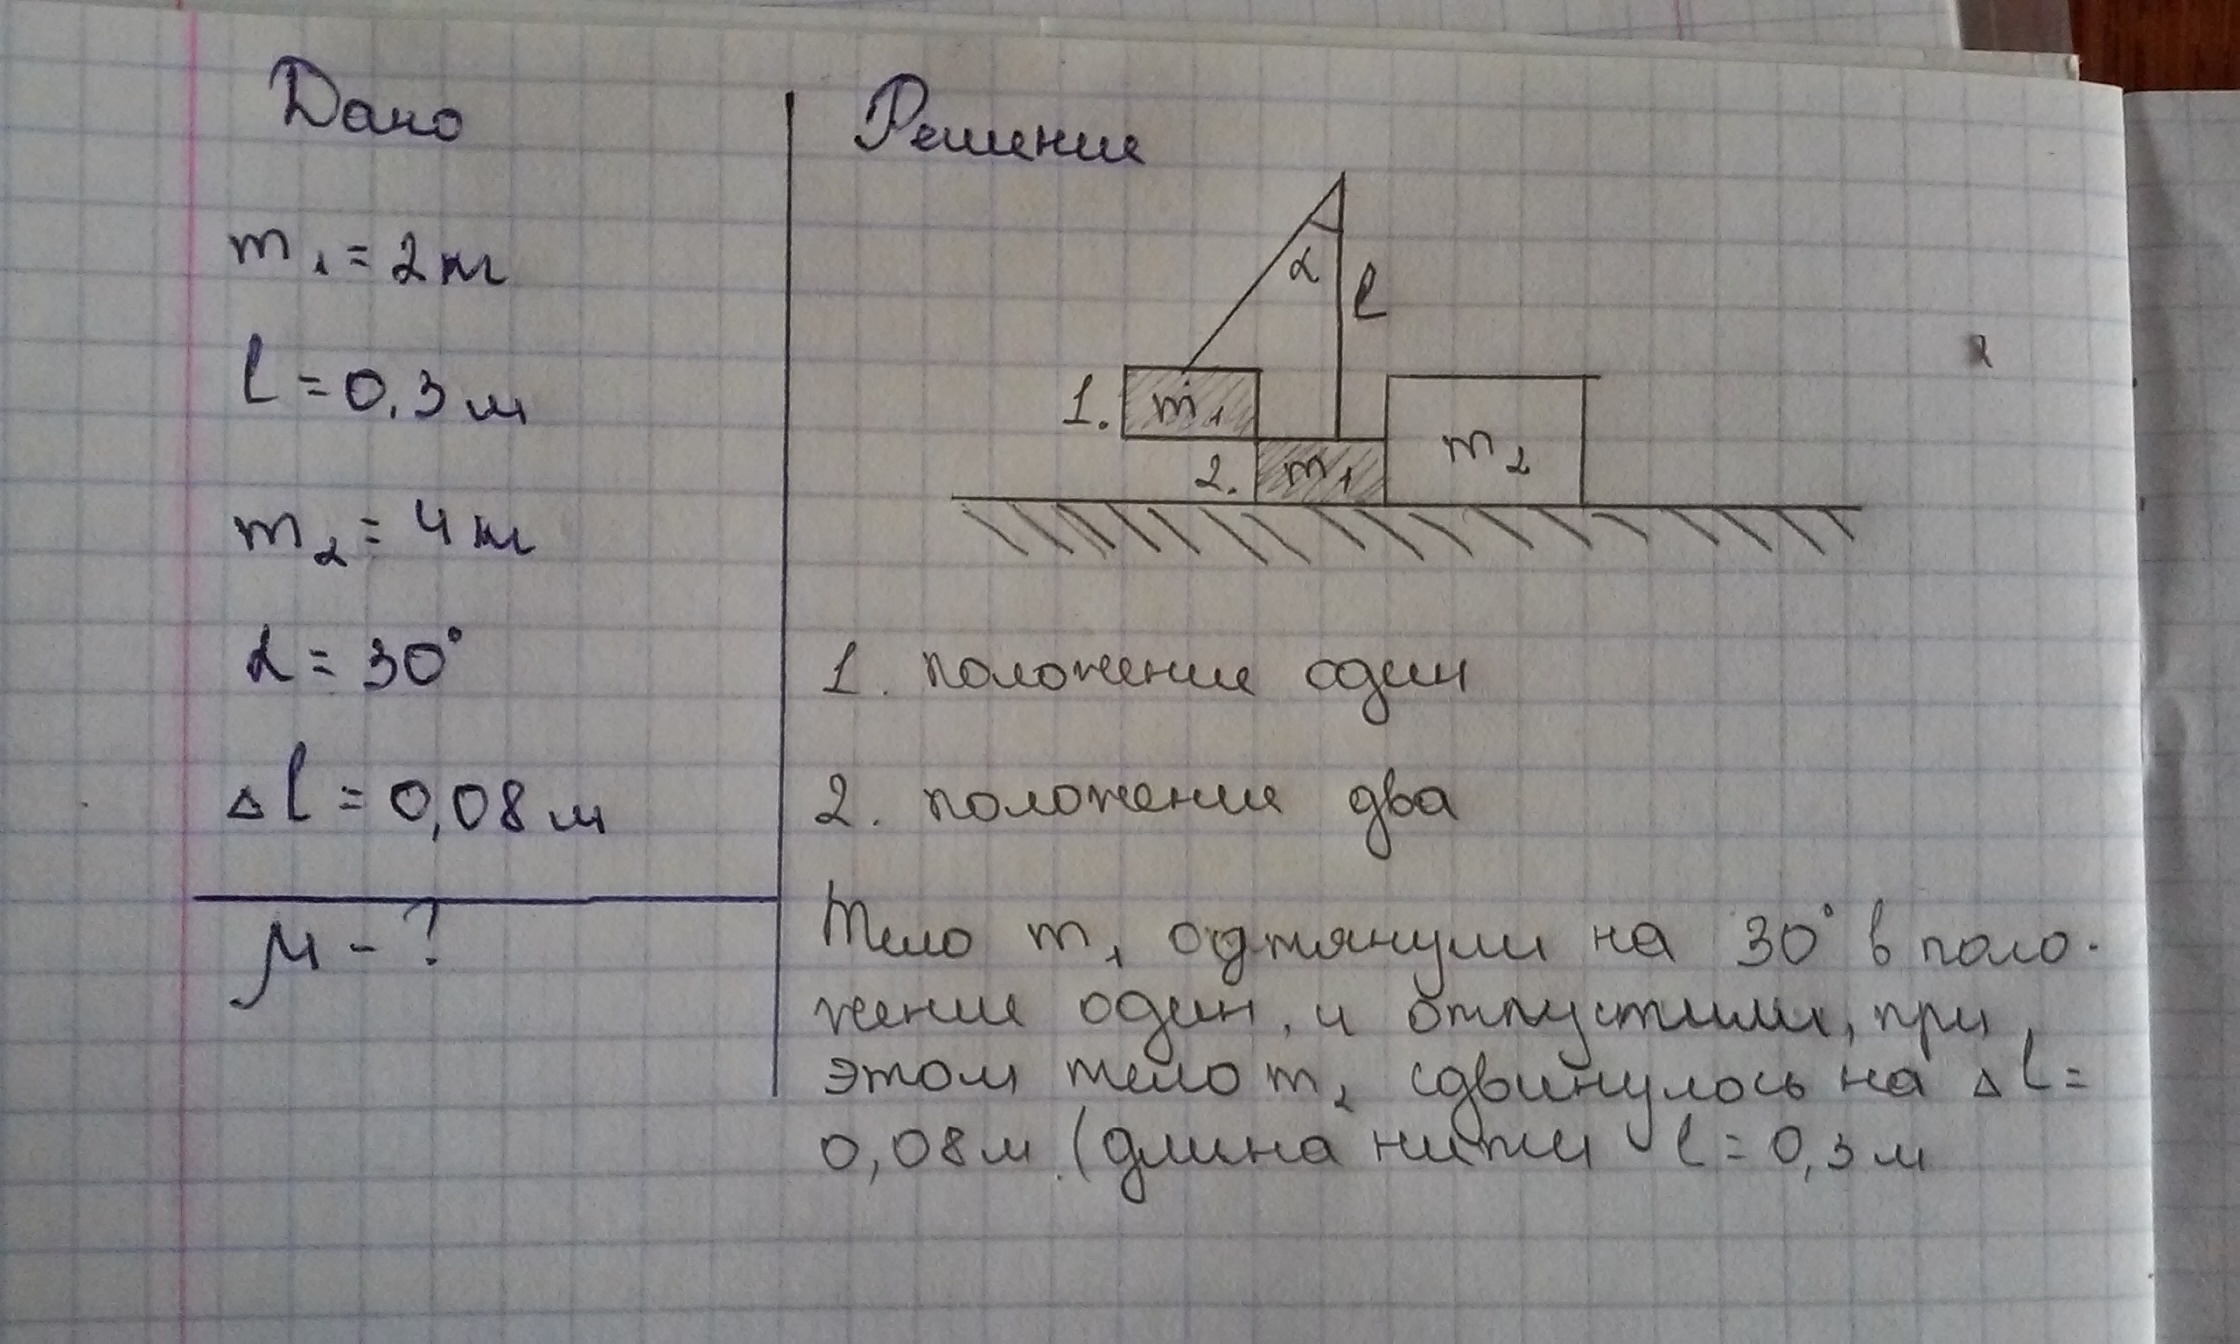 Дано
m₁ = 2 кг
l = 0,3 м
m₂ = 4 кг
α = 30°
Δl = 0,08 м
μ - ?
Решение
α
l
1. m₁
2. m₁
m₂
1. положение один
2. положение два
Тело m₁ одтянули на 30° в поло-
жение один, и отпустили, при
этом тело m₂ сдвинулось на Δl =
0,08 м. (длина нити l = 0,3 м